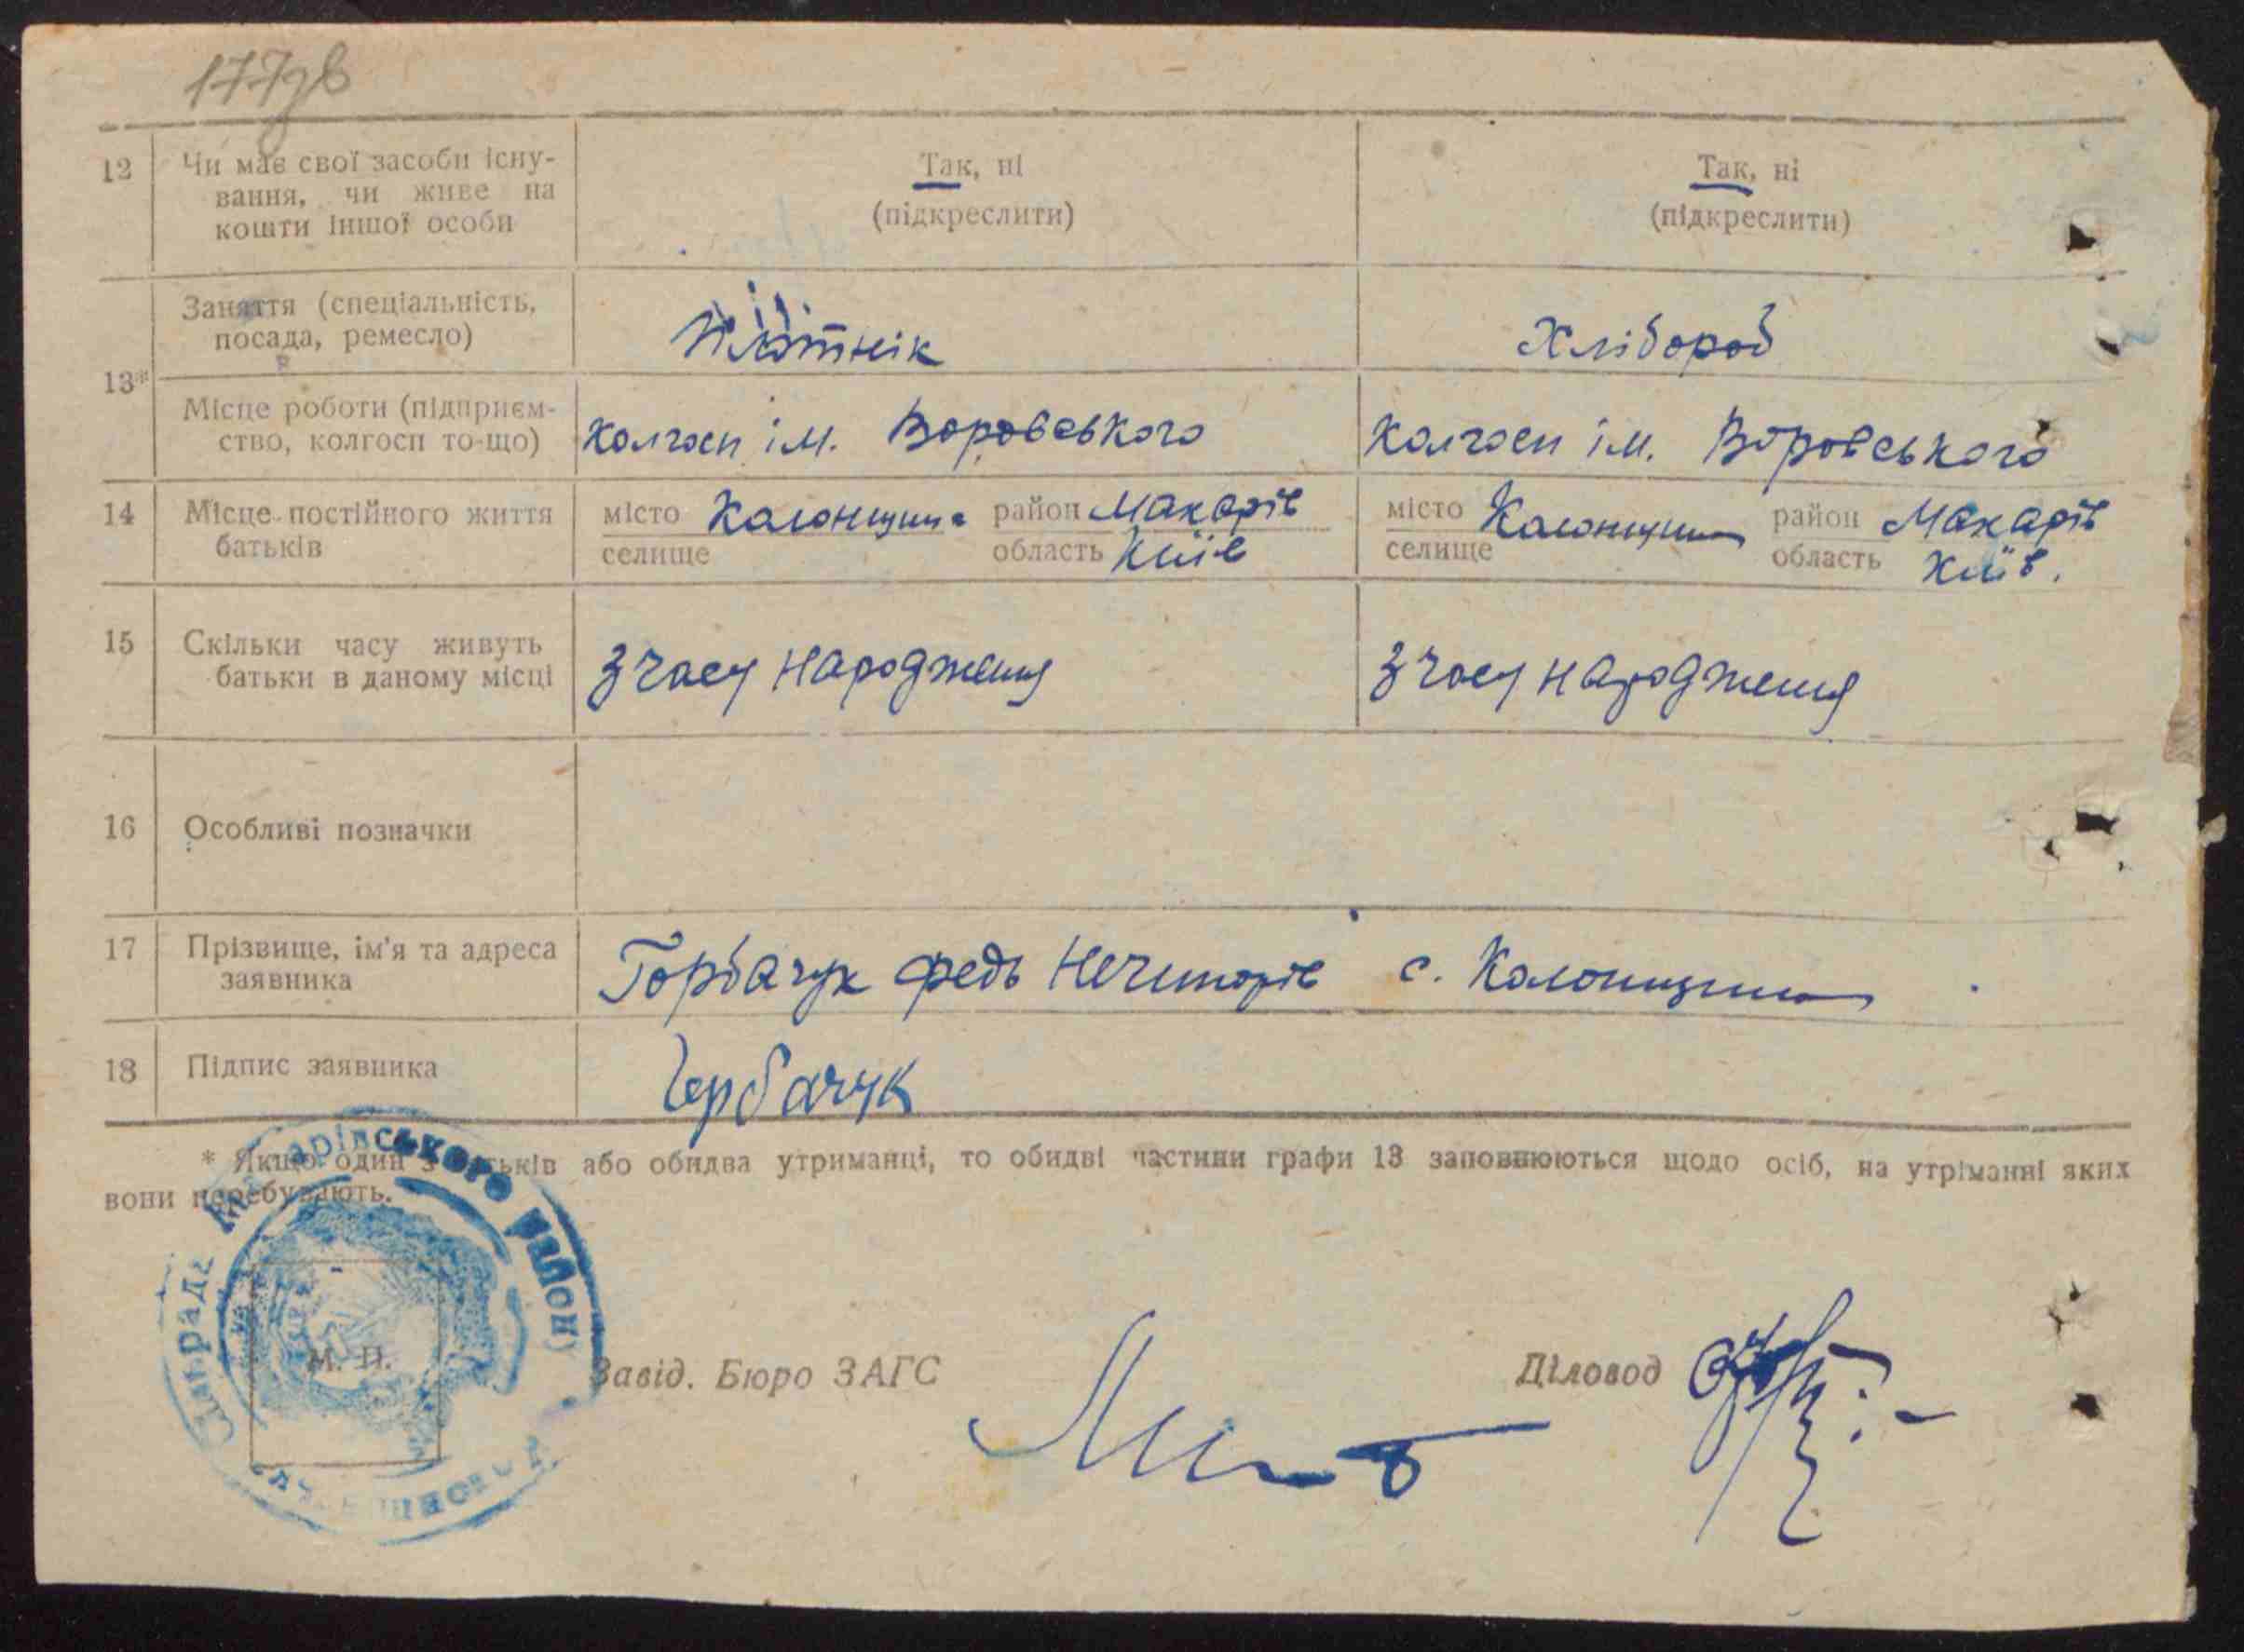 177зв
12 Чи має свої засоби існу- Так, ні Так, ні
вання, чи живе на (підкреслити) (підкреслити)
кошти іншої особи
13* Заняття (спеціальність, Плотнік Хлібороб
посада, ремесло)
Місце роботи (підприєм- Колгосп ім. Воровського Колгосп ім. Воровського
ство, колгосп то-що)
14 Місце постійного життя місто Колонщина район Макарів місто Колонщина район Макарів
батьків селище область Київ селище область Київ.
15 Скільки часу живуть З часу народження З часу народження
батьки в даному місці
16 Особливі позначки
17 Прізвище, ім'я та адреса Горбачук Федь Нечипорів с. Колонщина
заявника
18 Підпис заявника Горбачук
* Якщо один з батьків або обидва утриманці, то обидві частини графи 13 заповнюються щодо осіб, на утріманні яких
вони перебувають.
Макарівського району
М. П.
Завід. Бюро ЗАГС Діловод